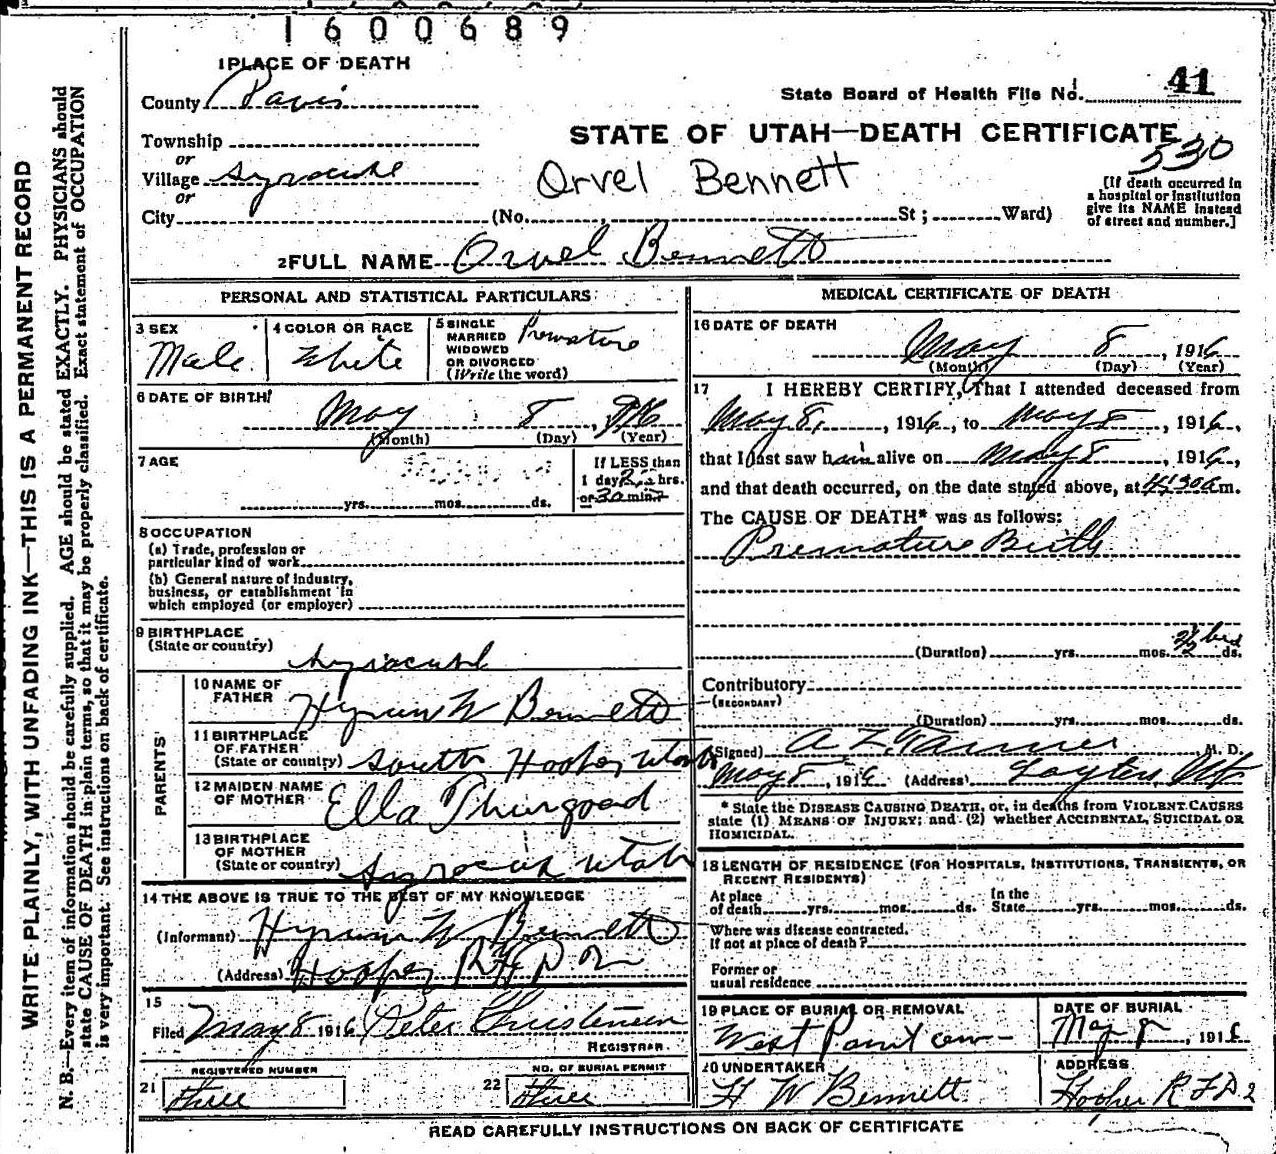 1600689
1 PLACE OF DEATH
County Davis
State Board of Health File No. 41
Township
STATE OF UTAH—DEATH CERTIFICATE
or
530
Village Syracuse
Orvel Bennett
or
City (No. , St ; Ward)
[If death occurred in
a hospital or institution
give its NAME instead
of street and number.]
2 FULL NAME Orvel Bennett
PERSONAL AND STATISTICAL PARTICULARS
3 SEX Male
4 COLOR OR RACE White
5 SINGLE
MARRIED
WIDOWED
OR DIVORCED
(Write the word)
Premature
6 DATE OF BIRTH
May 8, 916
(Month) (Day) (Year)
7 AGE
yrs. mos. ds.
If LESS than
1 day hrs.
or 30 min.?
8 OCCUPATION
(a) Trade, profession or
particular kind of work
(b) General nature of industry,
business, or establishment in
which employed (or employer)
9 BIRTHPLACE
(State or country)
Syracuse
PARENTS
10 NAME OF
FATHER
Hyrum W Bennett
11 BIRTHPLACE
OF FATHER
(State or country) South Hooper Utah
12 MAIDEN NAME
OF MOTHER
Ella Thurgood
13 BIRTHPLACE
OF MOTHER
(State or country) Syracuse Utah
14 THE ABOVE IS TRUE TO THE BEST OF MY KNOWLEDGE
(Informant) Hyrum W Bennett
(Address) Hooper R F D
15
Filed May 8 1916 Peter Christensen
REGISTRAR
REGISTERED NUMBER
21 three
NO. OF BURIAL PERMIT
22 three
MEDICAL CERTIFICATE OF DEATH
16 DATE OF DEATH
May 8, 1916
(Month) (Day) (Year)
17 I HEREBY CERTIFY, That I attended deceased from
May 8, 1916, to May 8, 1916,
that I last saw him alive on May 8, 1916,
and that death occurred, on the date stated above, at m.
The CAUSE OF DEATH* was as follows:
Premature Birth
(Duration) yrs. mos. ds.
Contributory
(SECONDARY)
(Duration) yrs. mos. ds.
(Signed) A Z Tanner, M. D.
May 8, 1916 (Address) Layton, Ut
* State the DISEASE CAUSING DEATH, or, in deaths from VIOLENT CAUSES
state (1) MEANS OF INJURY; and (2) whether ACCIDENTAL, SUICIDAL OR
HOMICIDAL.
18 LENGTH OF RESIDENCE (FOR HOSPITALS, INSTITUTIONS, TRANSIENTS, OR
RECENT RESIDENTS)
At place
of death yrs. mos. ds.
In the
State yrs. mos. ds.
Where was disease contracted.
If not at place of death?
Former or
usual residence
19 PLACE OF BURIAL OR REMOVAL
West Point cem-
DATE OF BURIAL
May 8, 1916
20 UNDERTAKER
H W Bennett
ADDRESS
Hooper R F D 2
READ CAREFULLY INSTRUCTIONS ON BACK OF CERTIFICATE
WRITE PLAINLY, WITH UNFADING INK—THIS IS A PERMANENT RECORD
N. B.—Every item of information should be carefully supplied. AGE should be stated EXACTLY. PHYSICIANS should
state CAUSE OF DEATH in plain terms, so that it may be properly classified. Exact statement of OCCUPATION
is very important. See instructions on back of certificate.